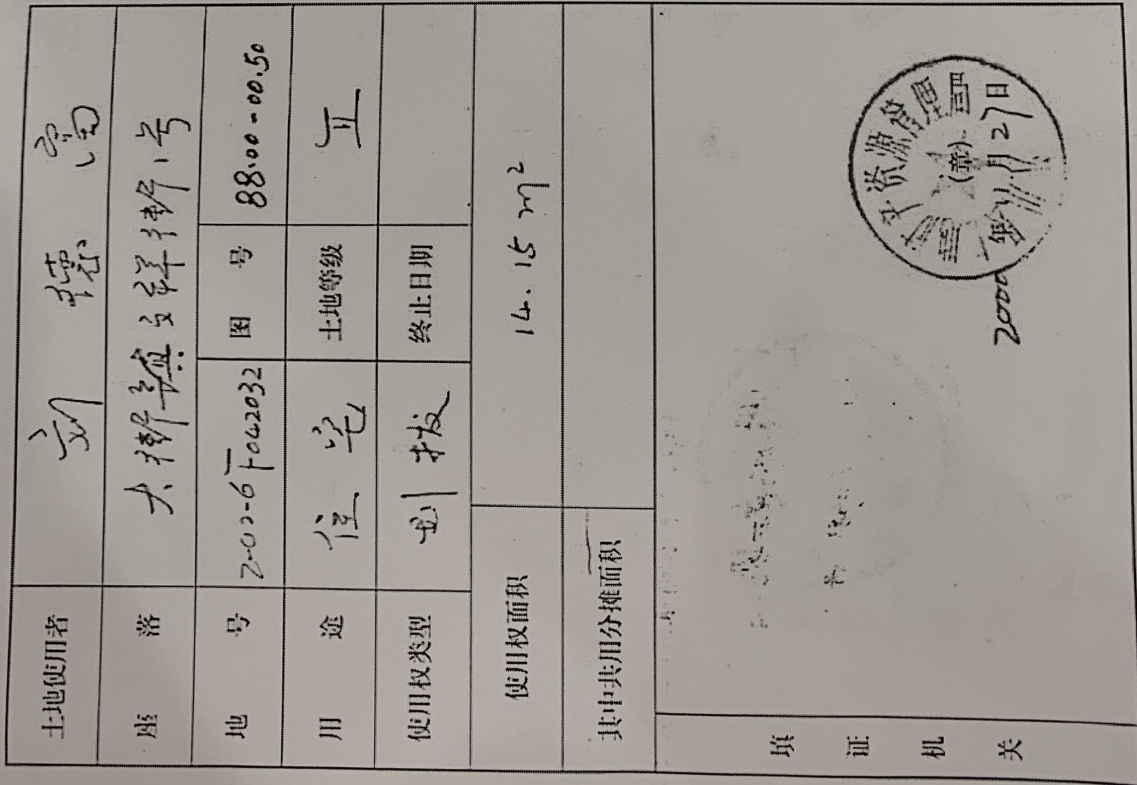 土地使用者 刘德富
座落 大街镇文祥街1号
地号 2-02-6下042032 图号 88.00-00.50
用途 住宅 土地等级 五
使用权类型 划拨 终止日期
使用权面积 14.15m²
其中共用分摊面积
填证机关
资源管理
(章)
2000年11月27日